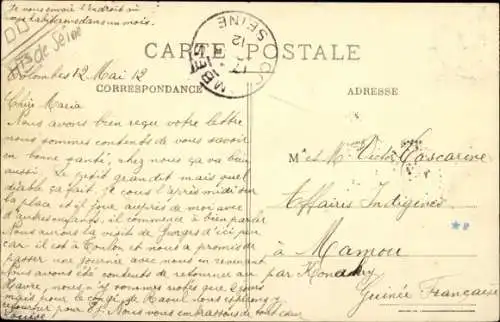 Je vous envoie l'endroit où
nous habiterons dans un mois.
Hts de Seine
COLOMBES
SEINE
17
12
CARTE POSTALE
CORRESPONDANCE
ADRESSE
Colombes 12 Mai 12
Chère Maria
Nous avons bien reçu votre lettre
nous sommes contents de vous savoir
en bonne santé, chez nous ça va bien
aussi. Le petit grandit mais quel
diable ça fait. Je cours l'après midi sur
la place et il joue auprès de moi avec
d'autres enfants, il commence à bien parler
Nous aurons la visite de Georges d'ici peu
car il est à Toulon et nous a promis de
passer une journée avec nous en revenant
Nous avons été contents de retourner au
Havre, nous n'y sommes restés que 2 jours
mais pour le congé de Raoul nous espérons y
retourner pour 8j. Nous vous embrassons de tout cœur
Louise
Mr et Me Victor Cascarine
Affaires Indigènes
à Mamou
par Konakry
Guinée Française